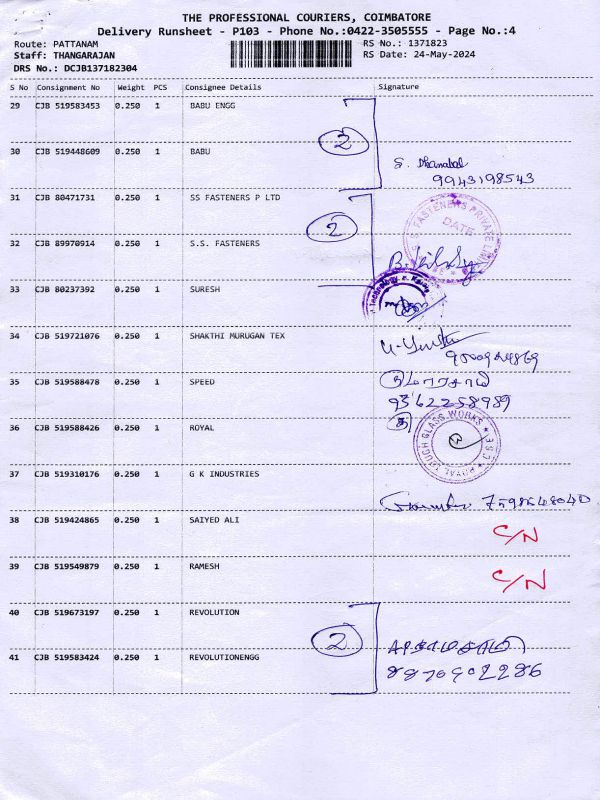 THE PROFESSIONAL COURIERS, COIMBATORE
Delivery Runsheet - P103 - Phone No.:0422-3505555 - Page No.:4
Route: PATTANAM
RS No.: 1371823
Staff: THANGARAJAN
RS Date: 24-May-2024
DRS No.: DCJB137182304
S No Consignment No Weight PCS Consignee Details Signature
29 CJB 519583453 0.250 1 BABU ENGG
2
30 CJB 519448609 0.250 1 BABU
S. Dhanabal
9943198543
31 CJB 80471731 0.250 1 SS FASTENERS P LTD
FASTENERS PRIVATE
DATE
2
32 CJB 89970914 0.250 1 S.S. FASTENERS
33 CJB 80237392 0.250 1 SURESH
34 CJB 519721076 0.250 1 SHAKTHI MURUGAN TEX
35 CJB 519588478 0.250 1 SPEED
9362258989
36 CJB 519588426 0.250 1 ROYAL
ROYAL TOUGH GLASS WORKS
37 CJB 519310176 0.250 1 G K INDUSTRIES
38 CJB 519424865 0.250 1 SAIYED ALI
C/N
39 CJB 519549879 0.250 1 RAMESH
C/N
40 CJB 519673197 0.250 1 REVOLUTION
2
41 CJB 519583424 0.250 1 REVOLUTIONENGG
8870902286